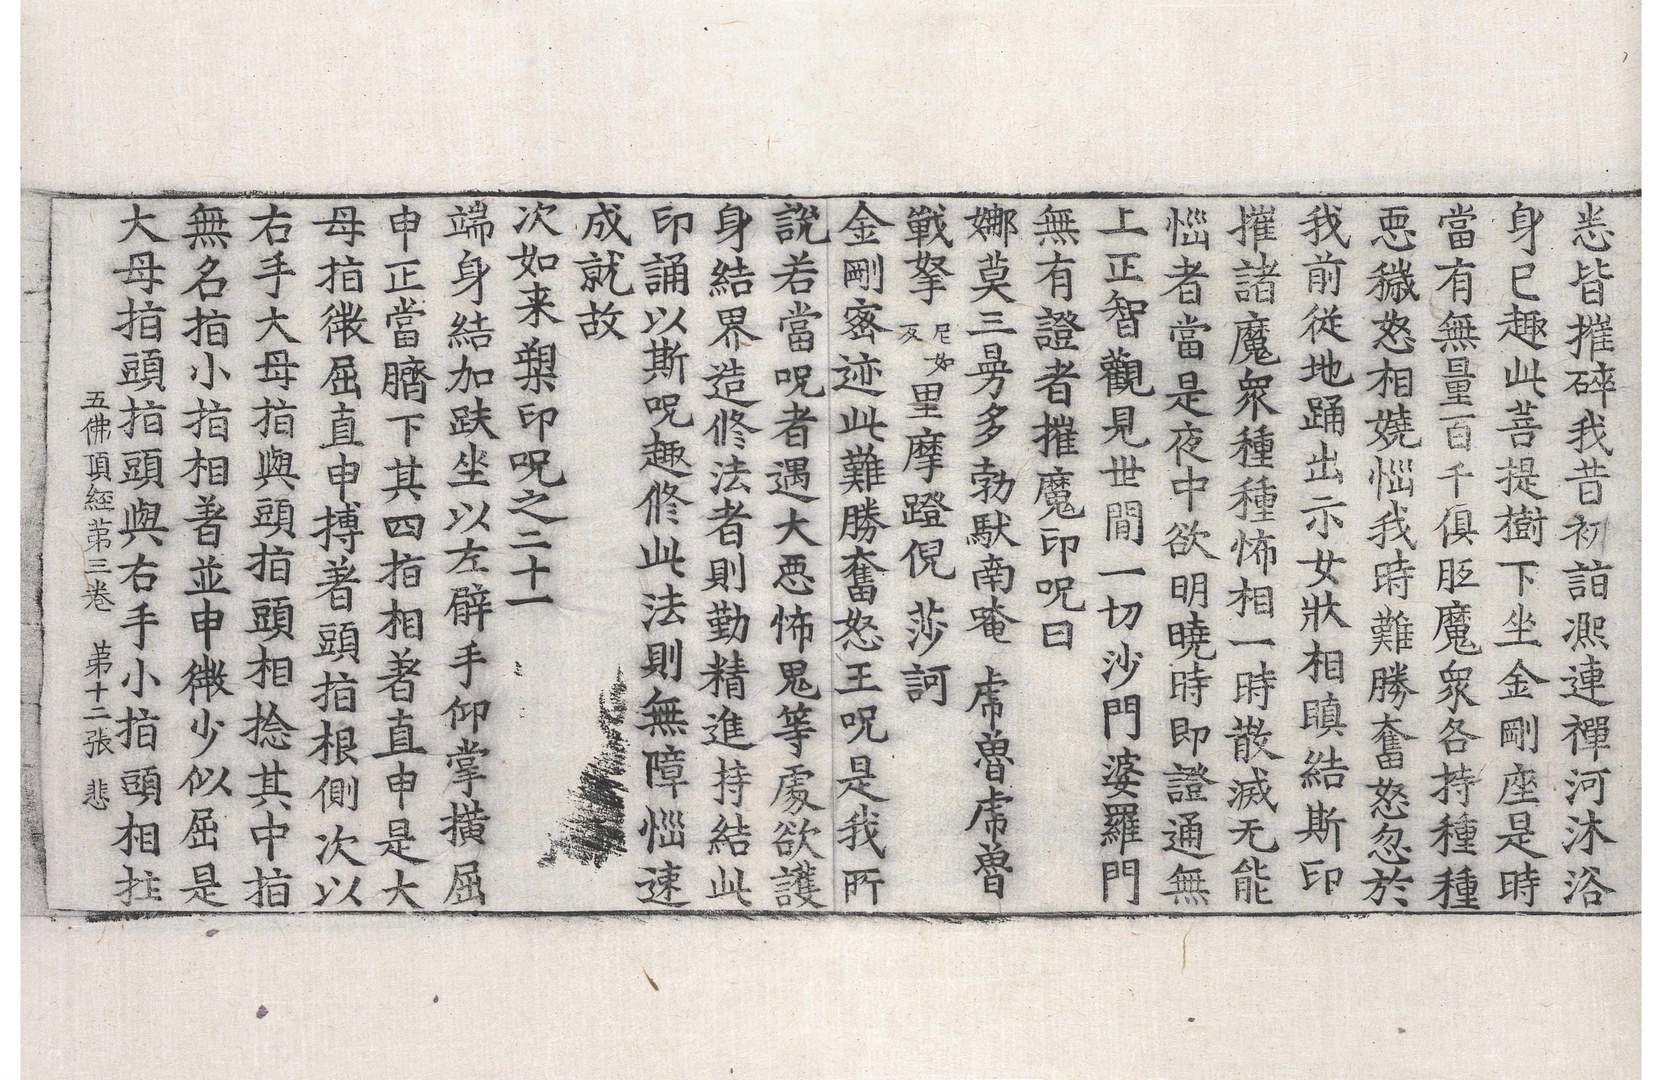 悉皆摧碎我昔初詣凞連禪河沐浴
身已趣此菩提樹下坐金剛座是時
當有無量百千俱胝魔衆各持種種
惡穢怒相嬈惱我時難勝奮怒忽於
我前從地踊出示女狀相瞋結斯印
摧諸魔衆種種怖相一時散滅无能
惱者當是夜中欲明曉時即證通無
上正智觀見世間一切沙門婆羅門
無有證者摧魔印呪曰
娜莫三曼多勃馱南唵 虎魯虎魯
戰拏尼如反里摩蹬倪 莎訶
金剛密迹此難勝奮怒王呪是我所
說若當呪者遇大惡怖鬼等處欲護
身結界造修法者則勤精進持結此
印誦以斯呪趣修此法則無障惱速
成就故
次如来槊印呪之二十一
端身結加趺坐以左臂手仰掌撗屈
申正當臍下其四指相著直申是大
母指微屈直申搏著頭指根側次以
右手大母指與頭指頭相捻其中指
無名指小指相著並申微少似屈是
大母指頭指頭與右手小指頭相拄
五佛頂經第三卷 第十二張 悲